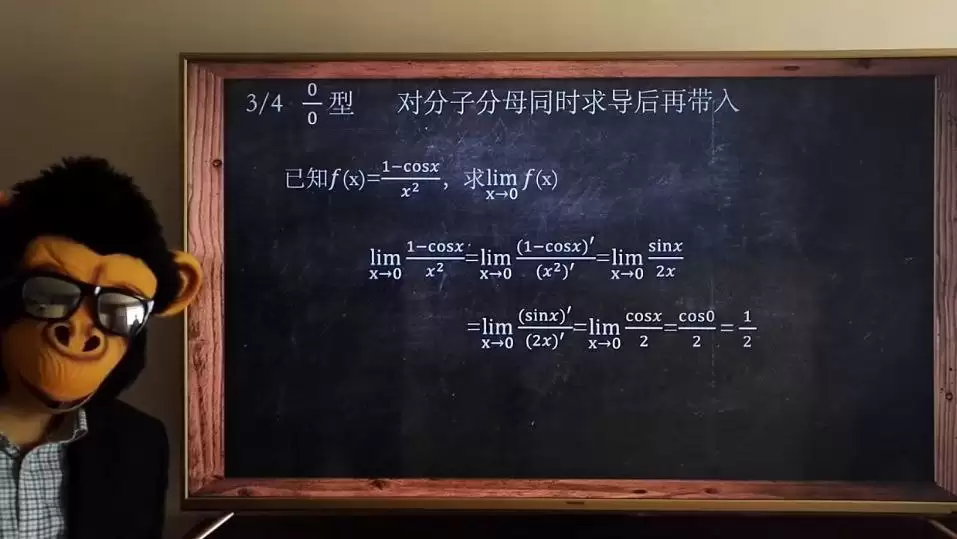 3/4 0/0 型 对分子分母同时求导后再带入
已知f(x)=1−cosx/x²，求lim x→0 f(x)
lim x→0 1−cosx/x² =lim x→0 (1−cosx)′/(x²)′ =lim x→0 sinx/2x
=lim x→0 (sinx)′/(2x)′ =lim x→0 cosx/2 = cos0/2 = 1/2